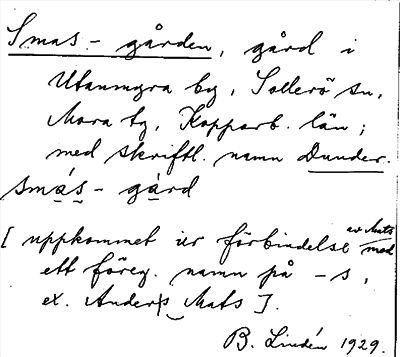 Smas - gården, gård i
Utanmyra by, Sollerö sn,
Mora tg, Kopparb. län;
med skriftl. namn Dunder.
smás - gård
[ uppkommet ur förbindelse av Mats med
ett föreg. namn på -s,
ex. Anders Mats ].
B. Lindén 1929.